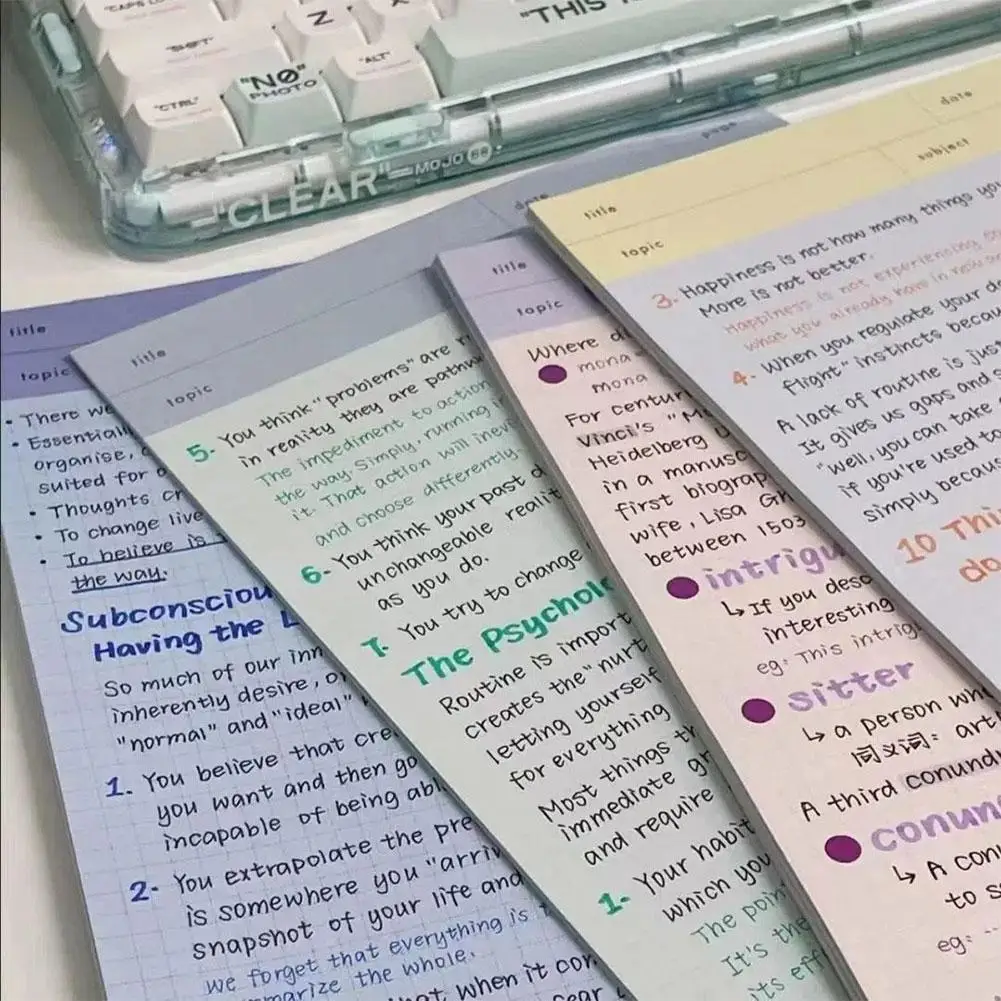 "CAPS LO
"SHIFT"
Z
"CTRL"
"NØ"
PHOTO
"ALT"
"THIS I
"CLEAR"
MOJO 68
title
topic
• There we
• Essentiall
organise,
suited for
• Thoughts cr
• To change live
• To believe is
the way.
Subconsciou
Having the L
So much of our inn
inherently desire, o
"normal" and "ideal"
1. You believe that cre
you want and then go
incapable of being abl
2- You extrapolate the pre
is somewhere you "arriv
snapshot of your life and
we forget that everything is
marize the whole.
hat when it con
page
date
title
topic
5. You think "problems" are r
in reality they are pathw
The impediment to action
the way. Simply, running i
it. That action will inev
and choose differently.
6- You think your past d
unchangeable realit
as you do.
7. You try to change
The Psychol
Routine is import
creates the "nurt
letting yourself
for everything
Most things th
immediate gr
and require
1- Your habit
which you
The poin
It's the
its eff
title
topic
Where d
mona
mona
For centur
Vinci's "M
Heidelberg U
in a manusc
first biograp
wife, Lisa Gh
between 1503
intrigu
↳ If you desc
interesting
eg: This intrig
sitter
↳ a person wh
同义词: art
A third conund
conun
↳ A con
to s
eg:
date
title
subject
topic
3. Happiness is not how many things yo
More is not better.
Happiness is not experiencing so
what you already have in new an
4. When you regulate your d
flight" instincts becau
A lack of routine is just
It gives us gaps and s
"Well, you can take
if you're used to
simply becaus
10 Thi
do